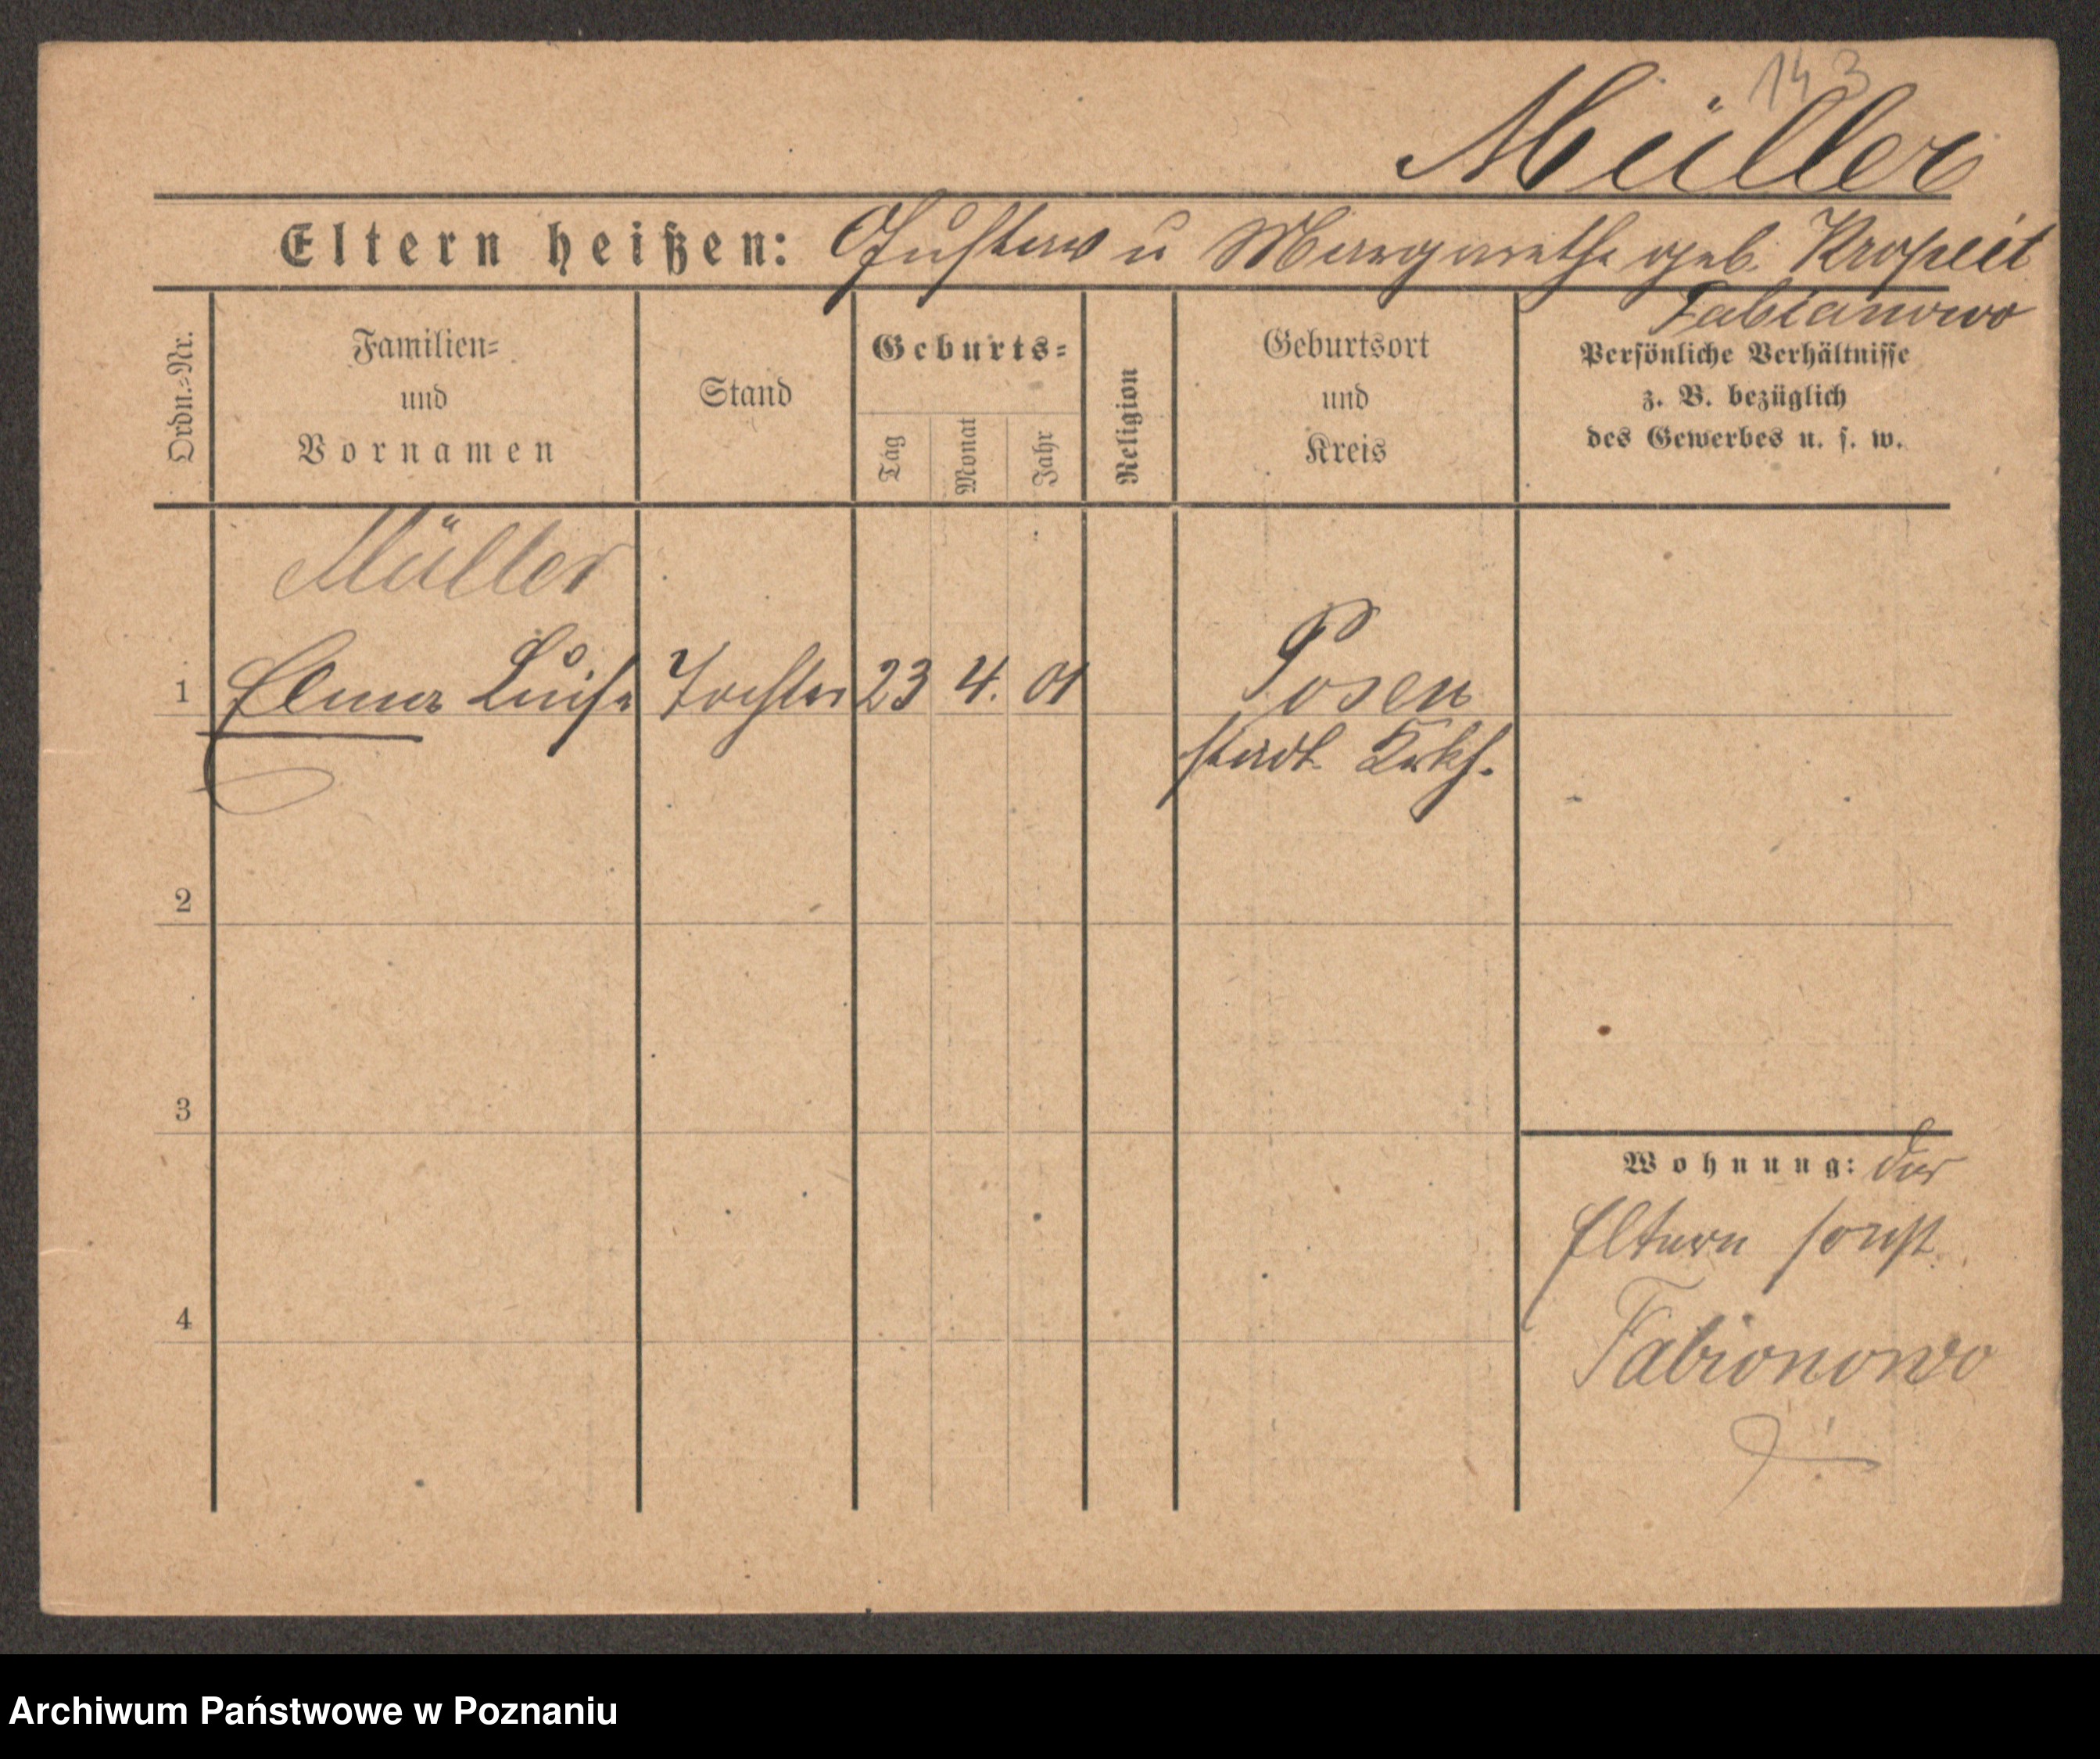 143
Müller
Eltern heißen: Gustav u Margarethe geb. Kropeit
Fabianowo
Ordn.-Nr.
Familien-
und
Vornamen
Stand
Geburts-
Tag
Monat
Jahr
Religion
Geburtsort
und
Kreis
Persönliche Verhältnisse
z. B. bezüglich
des Gewerbes u. s. w.
Müller
1 Luise Tochter 23 4. 01 Posen
stadt
2
3
Wohnung: der
Eltern sonst
4
Fabionowo
Archiwum Państwowe w Poznaniu